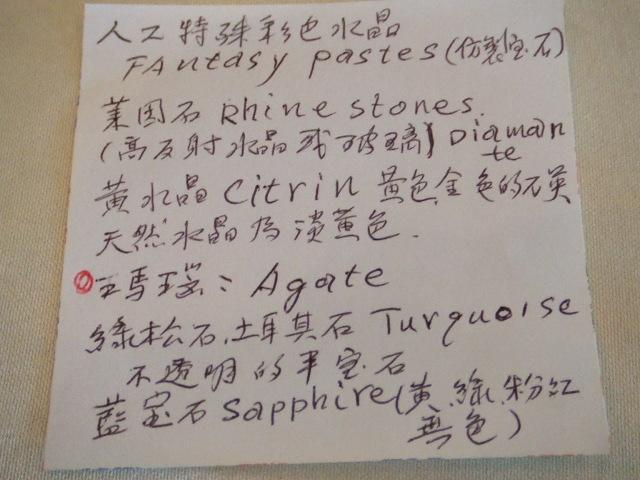 人工特殊彩色水晶
FAntasy pastes(仿製宝石)
萊因石 Rhine stones.
(高反射水晶或玻璃) Diaman
te
黃水晶 Citrin 黃色,金色的石英
天然水晶為淡黃色.
瑪瑙: Agate
綠松石,土耳其石 Turquoise
不透明的半宝石
藍宝石 Sapphire(黃,綠,粉紅
無色)